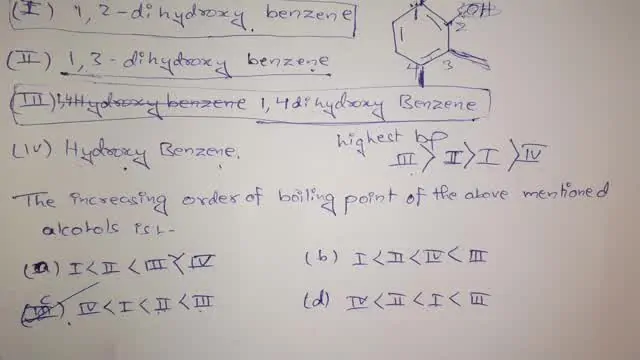 (I) 1,2-dihydroxy benzene
OH
2
3
4
(II) 1,3-dihydroxy benzene
(III) 1,4Hydroxy benzene 1,4dihydroxy Benzene
(IV) Hydroxy Benzene.
highest bp
III > II > I > IV
The increasing order of boiling point of the above mentioned
alcohols is:-
(a) I < II < III < IV
(b) I < II < IV < III
(c) IV < I < II < III
(d) IV < II < I < III